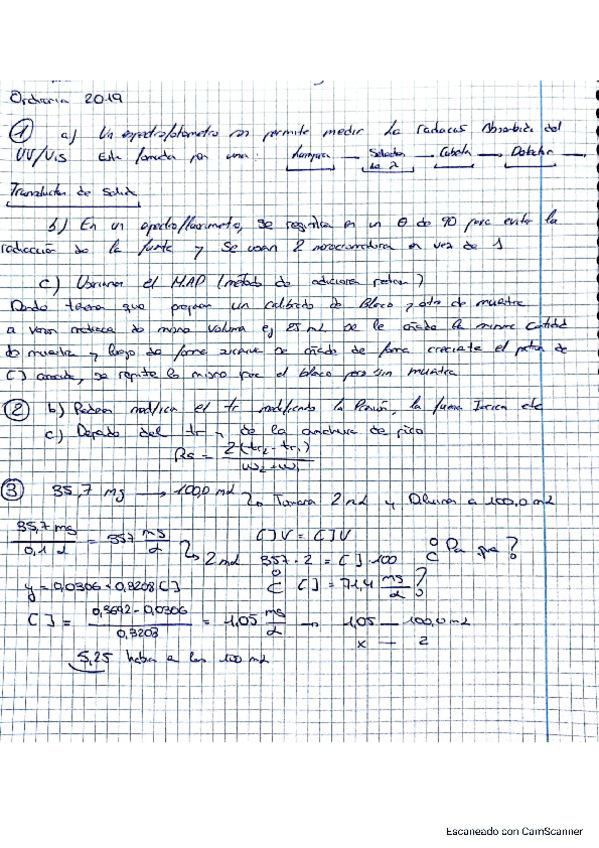 Ordinaria 2019
① a) Un espectrofotometro nos permite medir la radiacion Absorbida del
UV/Vis Esta formada por una: Lampara — Selector de λ — Cubeta → Detector —
Transductor de Señal
b) En un espectrofluorimetro, se registra en un θ de 90 para evitar la
radiacción de la fuente y se usan 2 monocromadores en vez de 1
c) Usariamos el MAP (metodo de adiciones patron)
Donde tenemos que preparar un calibrado de Blanco y otro de muestra
a varios matraces de mismo volumen ej 25 mL se le añade la misma cantidad
de muestra y luego de forma se añade de forma creciente el patron de
[ ] conocida, se repite lo mismo para el blanco pero sin muestra
② b) Podemos modificar el tr modificando la Presión, la fuerza Ionica etc
c) Depende del tr y de la anchura de pico
Rs = 2(tr2 - tr1) / w2 + w1
③ 35,7 mg → 100,0 mL Tomaron 2 mL y Diluimos a 100,0 mL
35,7 mg / 0,1 L = 357 mg/L [ ]V = [ ]V ¿ Pa que ?
2 mL 357 · 2 = [ ] · 100
y = 0,0306 + 0,3208 [ ] ¿ [ ] = 71,4 mg/L ?
[ ] = 0,3692 - 0,0306 / 0,3208 = 1,05 mg/L → 1,05 — 100,0 mL
x — 2
5,25 habia a los 100 mL
Escaneado con CamScanner